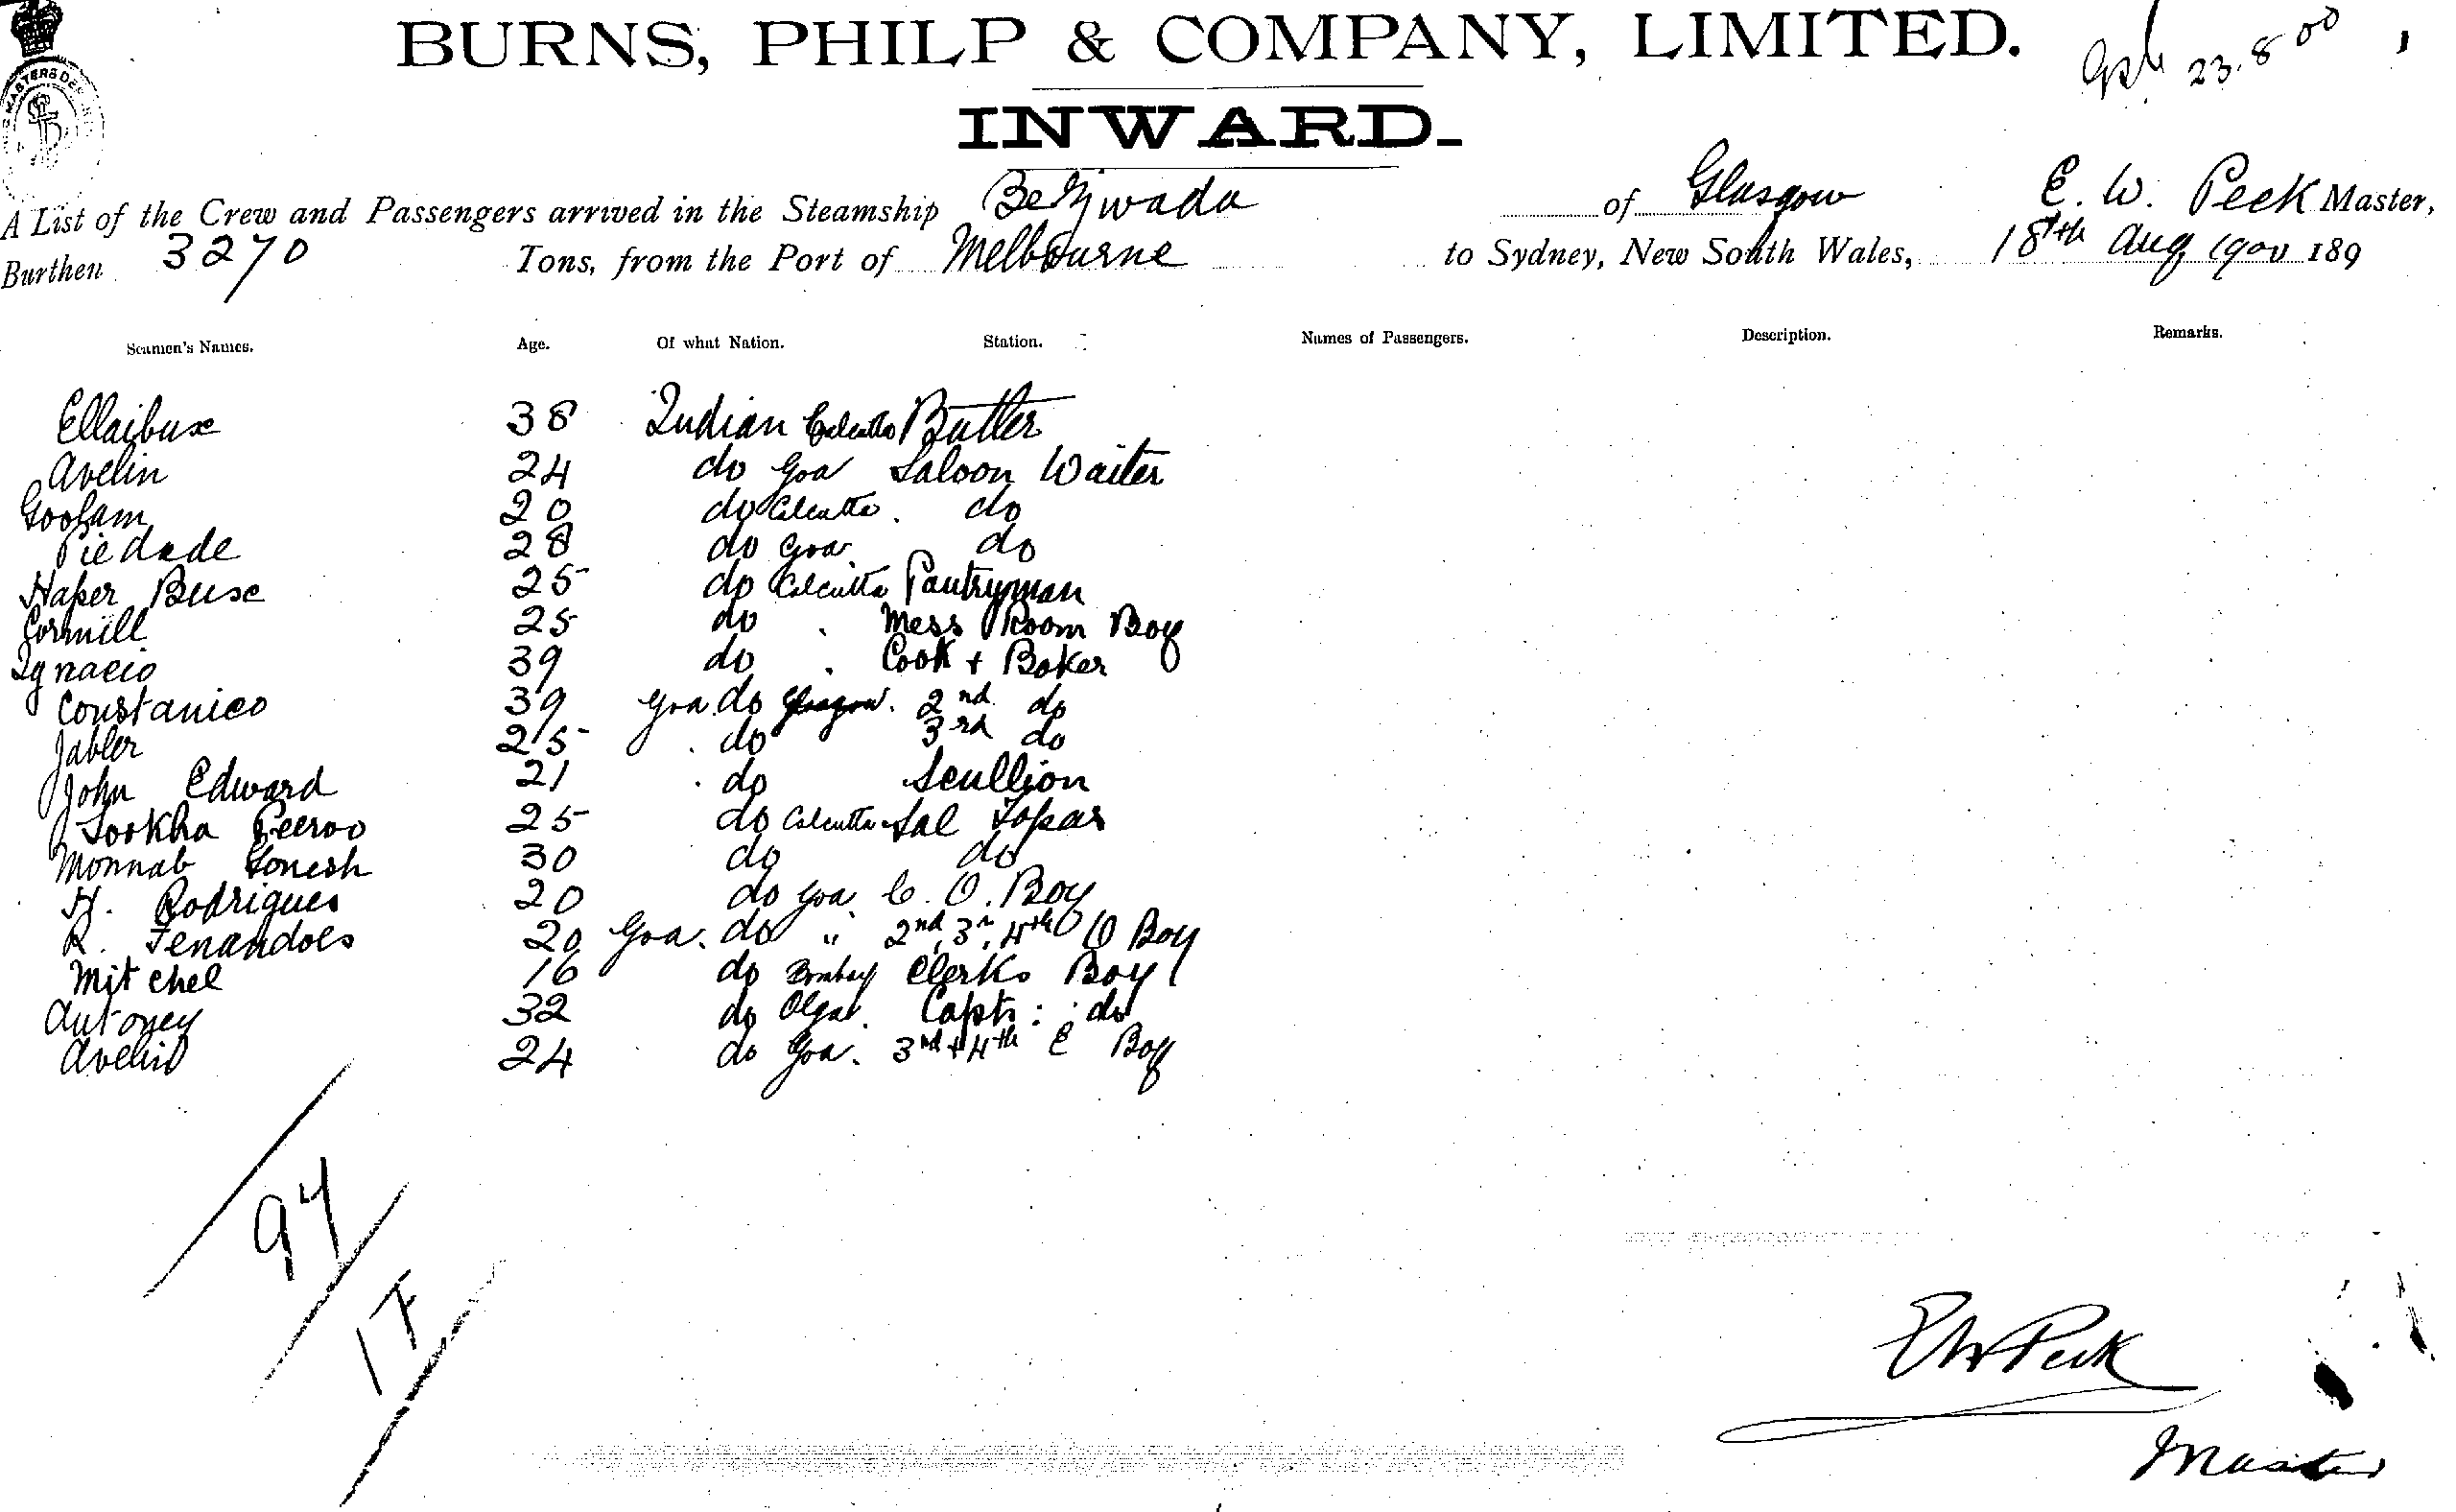 BURNS, PHILP & COMPANY, LIMITED.
23.8.00
INWARD.
A List of the Crew and Passengers arrived in the Steamship Bezwada of Glasgow E. W. Peck Master,
Burthen 3270 Tons, from the Port of Melbourne to Sydney, New South Wales, 18th Aug 1900 189
Seamen's Names. Age. Of what Nation. Station. Names of Passengers. Description. Remarks.
Ellaibuse 38 Indian Calcutta Butler
Avelin 24 do Goa Saloon Waiter
Goolam 20 do Calcutta. do
Piedade 28 do Goa. do
Haper Buse 25 do Calcutta Pantryman
Cormill 25 do . Mess Room Boy
Ignacio 39 do . Cook + Baker
Constanico 39 Goa. do Glasgow. 2nd do
Jabler 25 . do 3rd do
John Edward 21 . do Scullion
Sookha Peeroo 25 do Calcutta Sal Topas
Monnab Gonesh 30 do do
H. Rodrigues 20 do Goa. C. O. Boy
R. Fenandoes 20 Goa. do " 2nd, 3r, 4th O Boy
Mitchel 16 do Bombay Clerks Boy
Antoney 32 do Capts: do
Avelin 24 do Goa. 3rd + 4th E Boy
94
17
EW Peck
Master